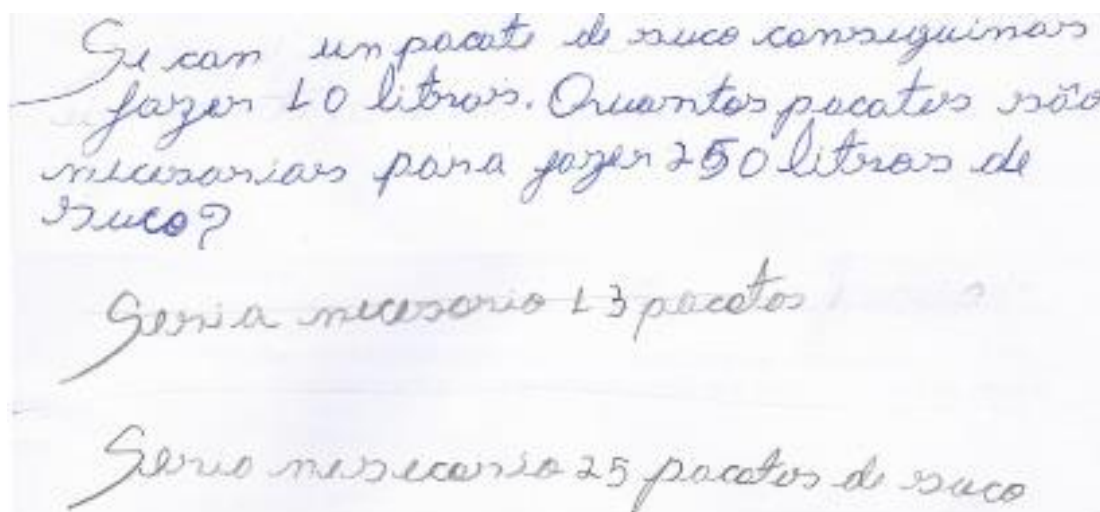 Se com um pacote de suco conseguimos
fazer 10 litros. Quantos pacates são
necesarias para fazer 250 litros de
suco?
Seria necesario 13 pacotes
Serio nesecario 25 pacotes de suco